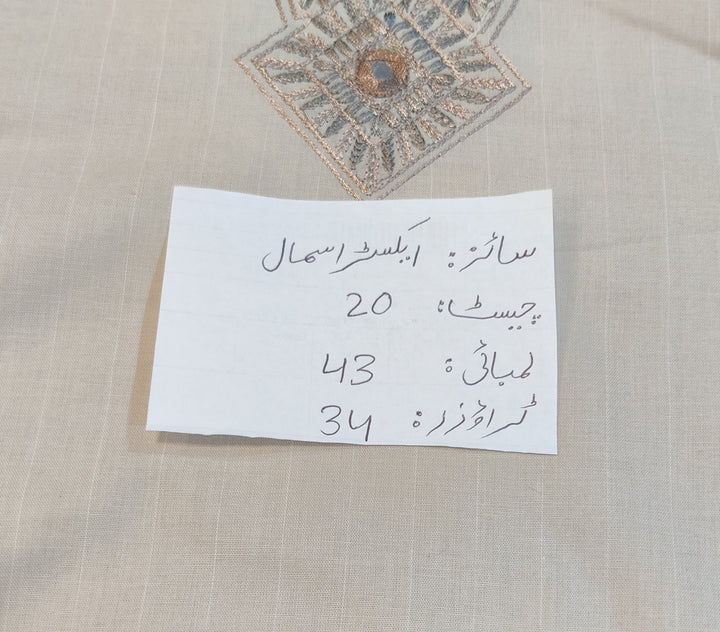 سائز: ایکسٹرا سمال
چیسٹ: 20
لمبائی: 43
ٹراؤزر: 34